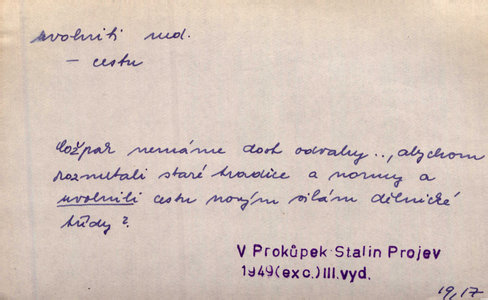 uvolniti ned.
– cestu
Což pak nemáme dost odvahy .., abychom
rozmetali staré tradice a normy a
uvolnili cestu novým silám dělnické
třídy?
V Prokůpek-Stalin Projev
1949(exc.)III.vyd.
19,17